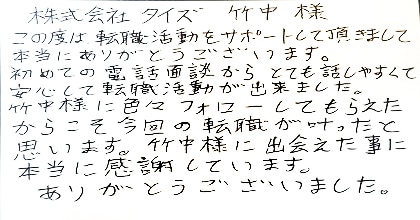 株式会社 タイズ 竹中 様
この度は転職活動をサポートして頂きまして
本当にありがとうございます。
初めての電話面談からとても話しやすくて
安心して転職活動が出来ました。
竹中様に色々フォローしてもらえた
からこそ今回の転職が叶ったと
思います。竹中様に出会えた事に
本当に感謝しています。
ありがとうございました。